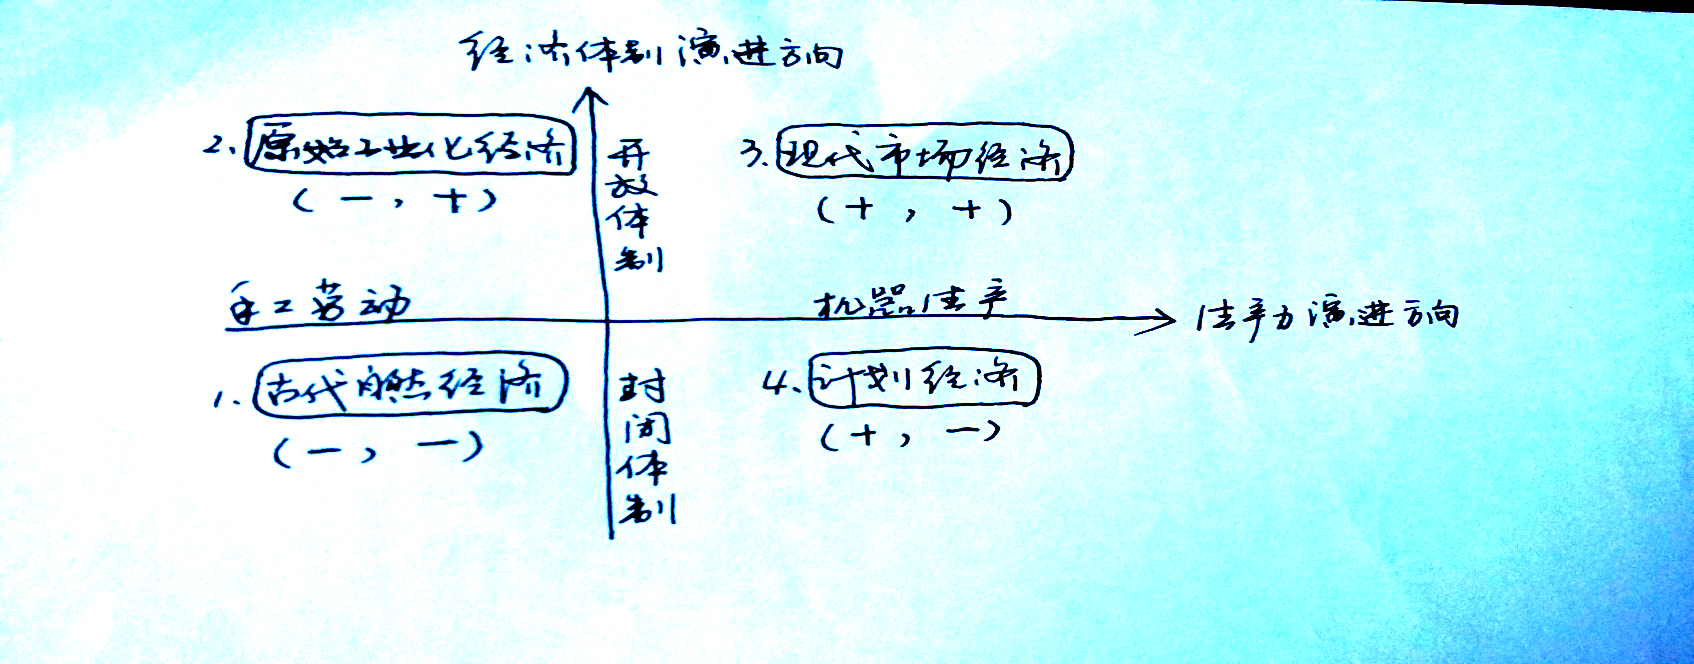 经济体制演进方向
2.原始工业化经济
(－,＋)
开放体制
3.现代市场经济
(＋,＋)
手工劳动
机器生产
生产力演进方向
1.古代自然经济
(－,－)
封闭体制
4.计划经济
(＋,－)